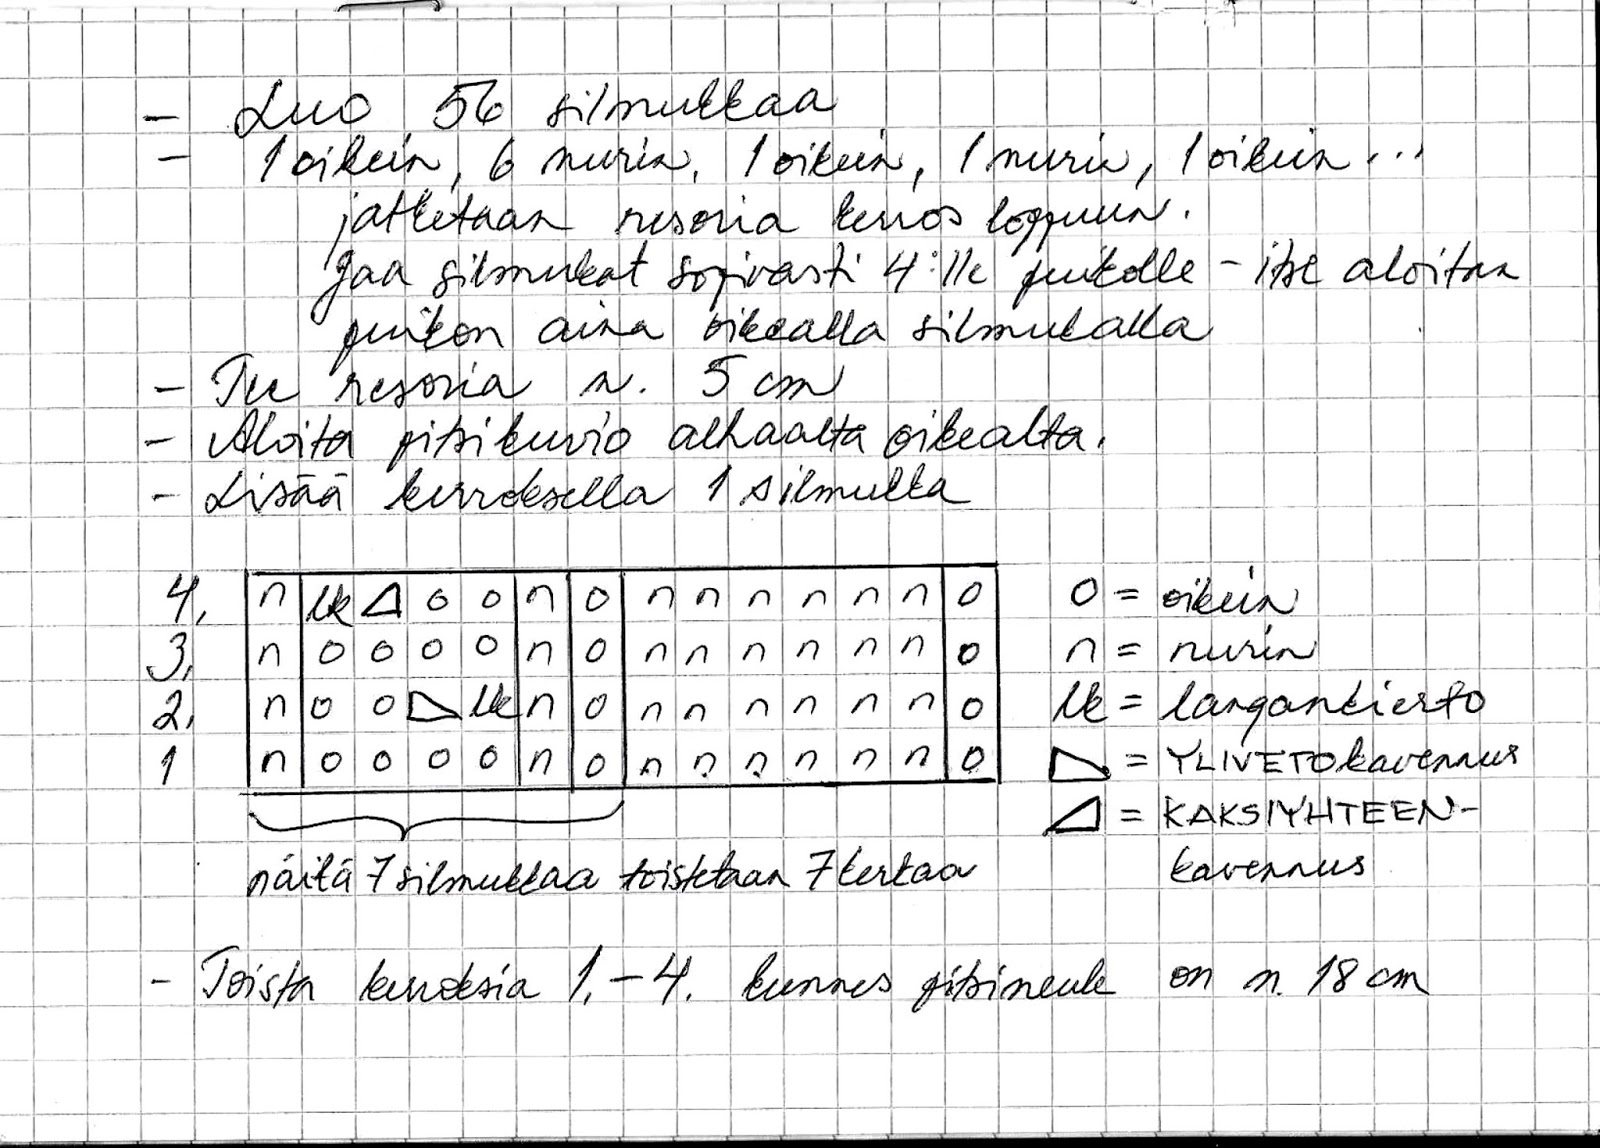 - Luo 56 silmukkaa
- 1 oikein, 6 nurin, 1 oikein, 1 nurin, 1 oikein...
jatketaan resoria kerros loppuun.
Jaa silmukat sopivasti 4:lle puikolle - itse aloitan
puikon aina oikealla silmukalla
- Tee resoria n. 5 cm
- Aloita pitsikuvio alhaalta oikealta.
- Lisää kerroksella 1 silmukka
4. n lk o o n o n n n n n n o
3. n o o o o n o n n n n n n o
2. n o o lk n o n n n n n n o
1 n o o o o n o n n n n n n o
o = oikein
n = nurin
lk = langankierto
= YLIVETOkavennus
= KAKSIYHTEEN-
kavennus
näitä 7 silmukkaa toistetaan 7 kertaa
- Toista kerroksia 1.-4. kunnes pitsineule on n. 18 cm